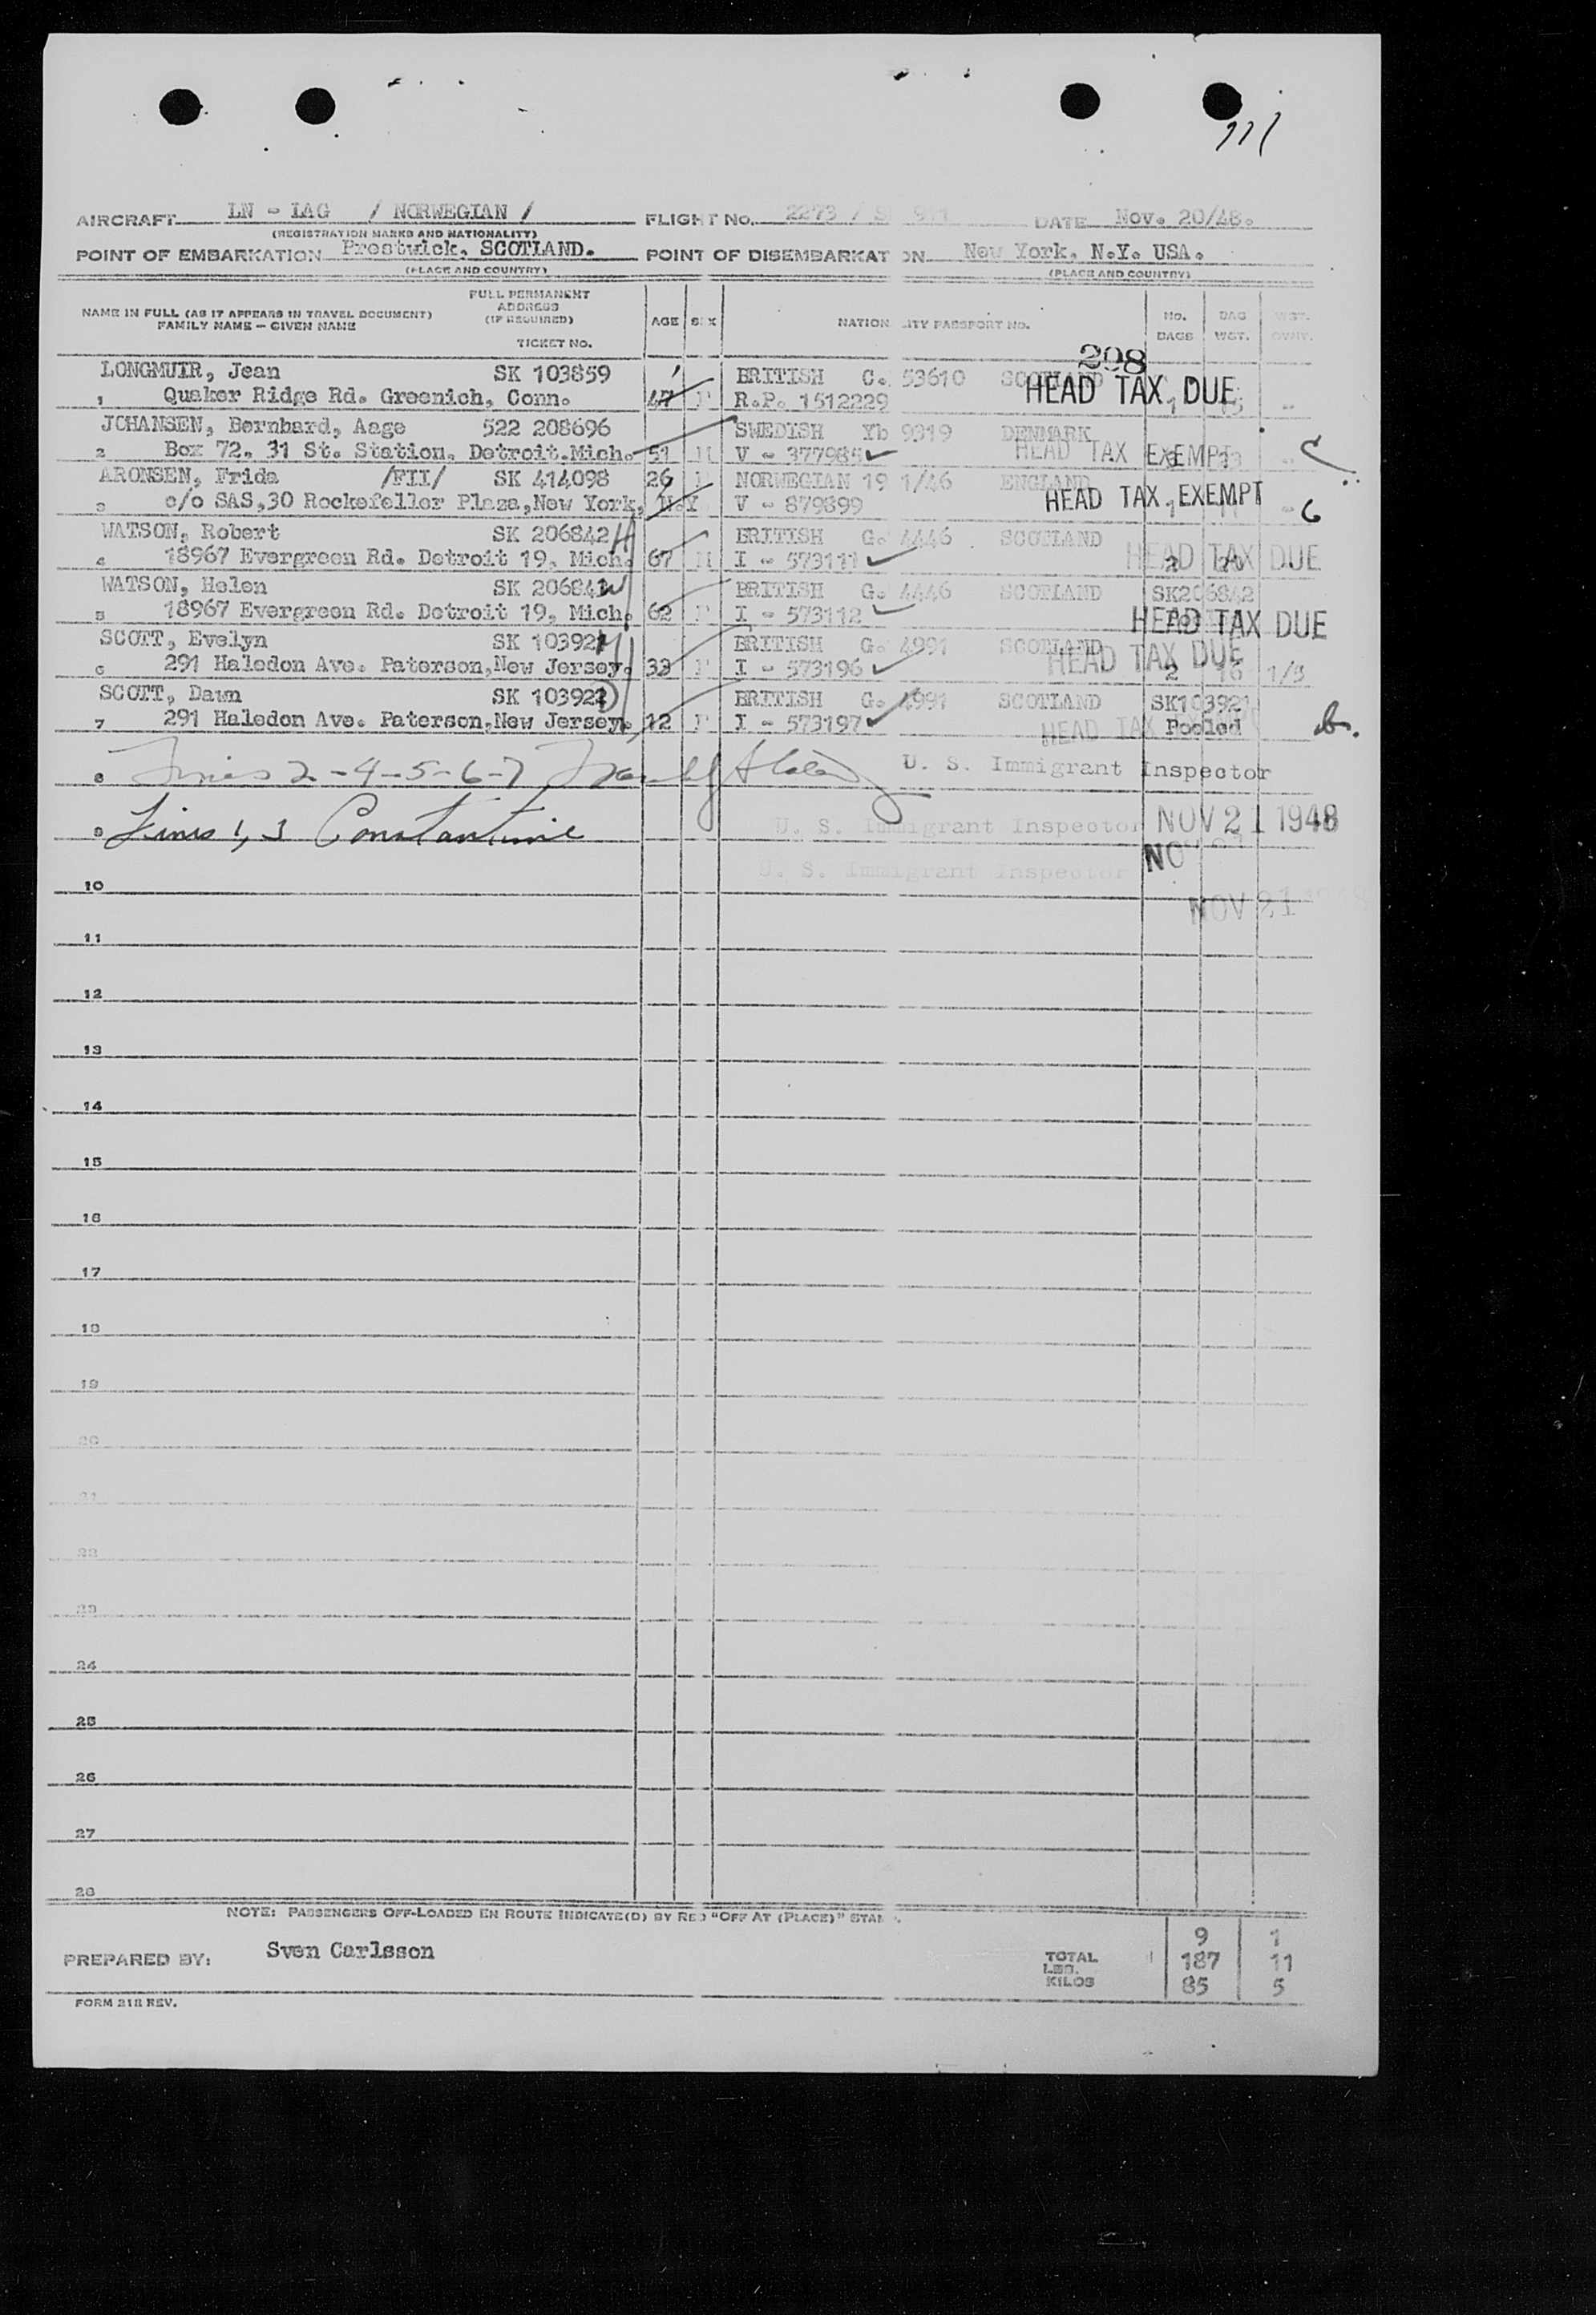 111
AIRCRAFT LN - IAG / NORWEGIAN / FLIGHT No. 2273 / DATE Nov. 20/48.
(REGISTRATION MARKS AND NATIONALITY)
POINT OF EMBARKATION Prestwick, SCOTLAND. POINT OF DISEMBARKAT ON New York, N.Y. USA.
(PLACE AND COUNTRY) (PLACE AND COUNTRY)
NAME IN FULL (AS IT APPEARS IN TRAVEL DOCUMENT) FAMILY NAME - GIVEN NAME FULL PERMANENT ADDRESS (IF REQUIRED) TICKET NO. AGE SEX NATION ITY PASSPORT NO. No. BAGS BAG WGT. WGT.
298
LONGMUIR, Jean SK 103859 BRITISH C. 53610 SCOTLAND
HEAD TAX DUE
1 Quaker Ridge Rd. Greenich, Conn. 47 F R.P. 1512229 1 15 -
JOHANSEN, Bernhard, Aage 522 208696 SWEDISH Yb 9319 DENMARK
2 Box 72, 31 St. Station, Detroit.Mich. 51 M V - 377985 HEAD TAX EXEMPT - C
ARONSEN, Frida /FII/ SK 414098 26 F NORWEGIAN 19 1/46 ENGLAND
3 c/o SAS,30 Rockefeller Plaza,New York, N.Y V - 879899 HEAD TAX EXEMPT 1 11 -
WATSON, Robert SK 206842 BRITISH G. 4446 SCOTLAND
4 18967 Evergreen Rd. Detroit 19, Mich. 67 M I - 573111 HEAD TAX DUE 2
WATSON, Helen SK 206842 BRITISH G. 4446 SCOTLAND SK206842
5 18967 Evergreen Rd. Detroit 19, Mich. 62 F I - 573112 HEAD TAX DUE
SCOTT, Evelyn SK 103921 BRITISH G. 4991 SCOTLAND
6 291 Haledon Ave. Paterson,New Jersey. 33 F I - 573196 HEAD TAX DUE 2 16 1/5
SCOTT, Dawn SK 103921 BRITISH G. 4991 SCOTLAND SK103921
7 291 Haledon Ave. Paterson,New Jersey. 12 F I - 573197 HEAD TAX Pooled
8 Lines 2-4-5-6-7 U. S. Immigrant Inspector
9 Lines 1, 3 Constantine U. S. Immigrant Inspector NOV 21 1948
NOV 21
10 U. S. Immigrant Inspector
NOV 21
11
12
13
14
15
16
17
18
19
20
21
22
23
24
25
26
27
28
NOTE: PASSENGERS OFF-LOADED EN ROUTE INDICATE(D) BY RED "OFF AT (PLACE)" STAM
PREPARED BY: Sven Carlsson
9 1
TOTAL LBS. 187 11
KILOS 85 5
FORM 218 REV.